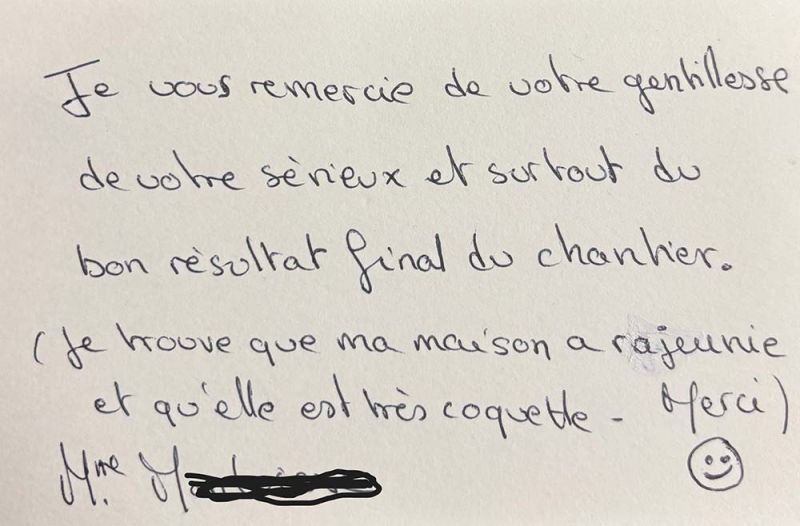 Je vous remercie de votre gentillesse
de votre sérieux et surtout du
bon résultat final du chantier.
(Je trouve que ma maison a rajeunie
et qu'elle est très coquette - Merci)
Mme M